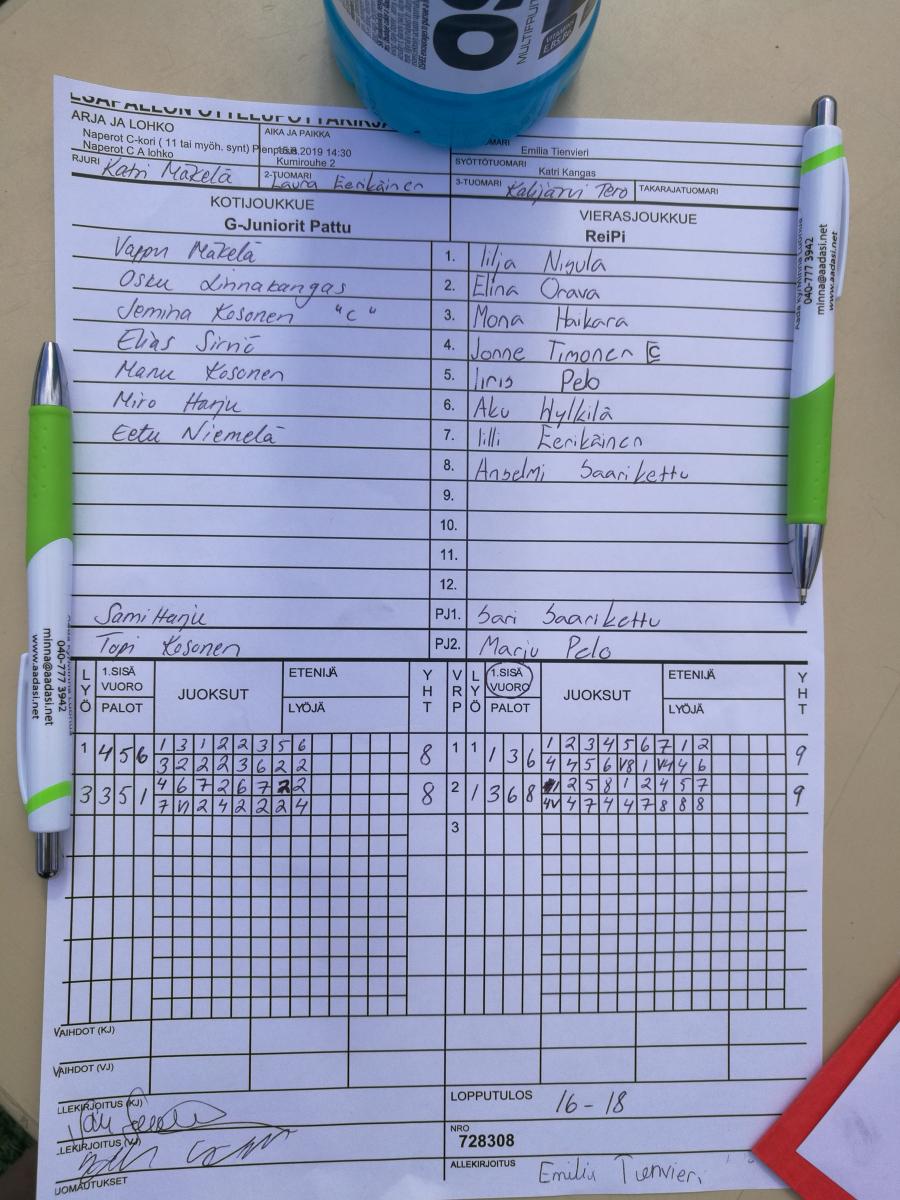 MULTIFRUIT
ESÄPALLON OTTELUPÖYTÄKIRJA
ARJA JA LOHKO
Naperot C-kori ( 11 tai myöh. synt) Pienp
Naperot C A lohko
AIKA JA PAIKKA
.8.2019 14:30
Kumirouhe 2
OMARI
Emilia Tienvieri
SYÖTTÖTUOMARI
Katri Kangas
RJURI Katri Mäkelä
2-TUOMARI Laura Eerikäinen
3-TUOMARI Kalijärvi Tero
TAKARAJATUOMARI
KOTIJOUKKUE
G-Juniorit Pattu
VIERASJOUKKUE
ReiPi
Vappu Mäkelä 1. Iilja Nigula
Osku Linnakangas 2. Elina Orava
Jemina Kosonen "C" 3. Mona Haikara
Elias Sirniö 4. Jonne Timonen C
Manu Kosonen 5. Iiris Pelo
Miro Harju 6. Aku Hylkilä
Eetu Niemelä 7. Iilli Eerikäinen
8. Anselmi Saarikettu
9.
10.
11.
12.
Sami Harju PJ1. Sari Saarikettu
Topi Kosonen PJ2. Marju Pelo
LYÖ 1.SISÄ VUORO PALOT JUOKSUT ETENIJÄ LYÖJÄ YHT VRP LYÖ 1.SISÄ VUORO PALOT JUOKSUT ETENIJÄ LYÖJÄ YHT
1 4 5 6 1 3 1 2 2 3 5 6 8 1 1 1 3 6 1 2 3 4 5 6 7 1 2 9
3 2 2 2 3 6 2 2 4 4 5 6 V8 1 V4 4 6
3 3 5 1 4 6 7 2 6 7 2 2 8 2 1 3 6 8 2 5 8 1 2 4 5 7 9
7 2 4 2 2 2 4 4V 4 7 4 4 7 8 8 8
3
VAIHDOT (KJ)
VAIHDOT (VJ)
LLEKIRJOITUS (KJ)
LOPPUTULOS 16-18
LLEKIRJOITUS (VJ)
NRO
728308
UOMAUTUKSET
ALLEKIRJOITUS Emilia Tienvieri
040-777 3942
minna@aadasi.net
www.aadasi.net
040-777 3942
minna@aadasi.net
www.aadasi.net